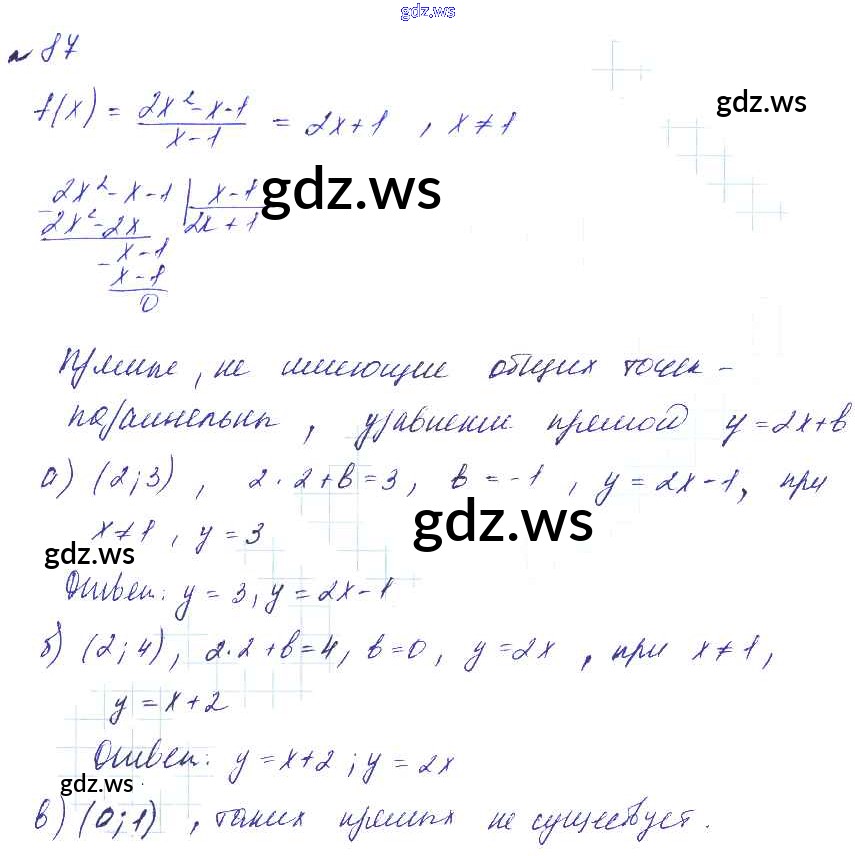 gdz.ws
№ 87
f(x) = (2x² - x - 1)/(x - 1) = 2x + 1 , x ≠ 1
gdz.ws
2x² - x - 1 | x - 1
gdz.ws
- 2x² - 2x | 2x + 1
- x - 1
x - 1
0
Прямые, не имеющие общих точек -
параллельны, уравнение прямой y = 2x + b
а) (2; 3) , 2·2 + b = 3, b = -1 , y = 2x - 1, при
x ≠ 1 , y = 3
gdz.ws
gdz.ws
Ответ: y = 3, y = 2x - 1
б) (2; 4), 2·2 + b = 4, b = 0, y = 2x , при x ≠ 1,
y = x + 2
Ответ: y = x + 2 ; y = 2x
gdz.ws
в) (0; 1) , таких прямых не существует.